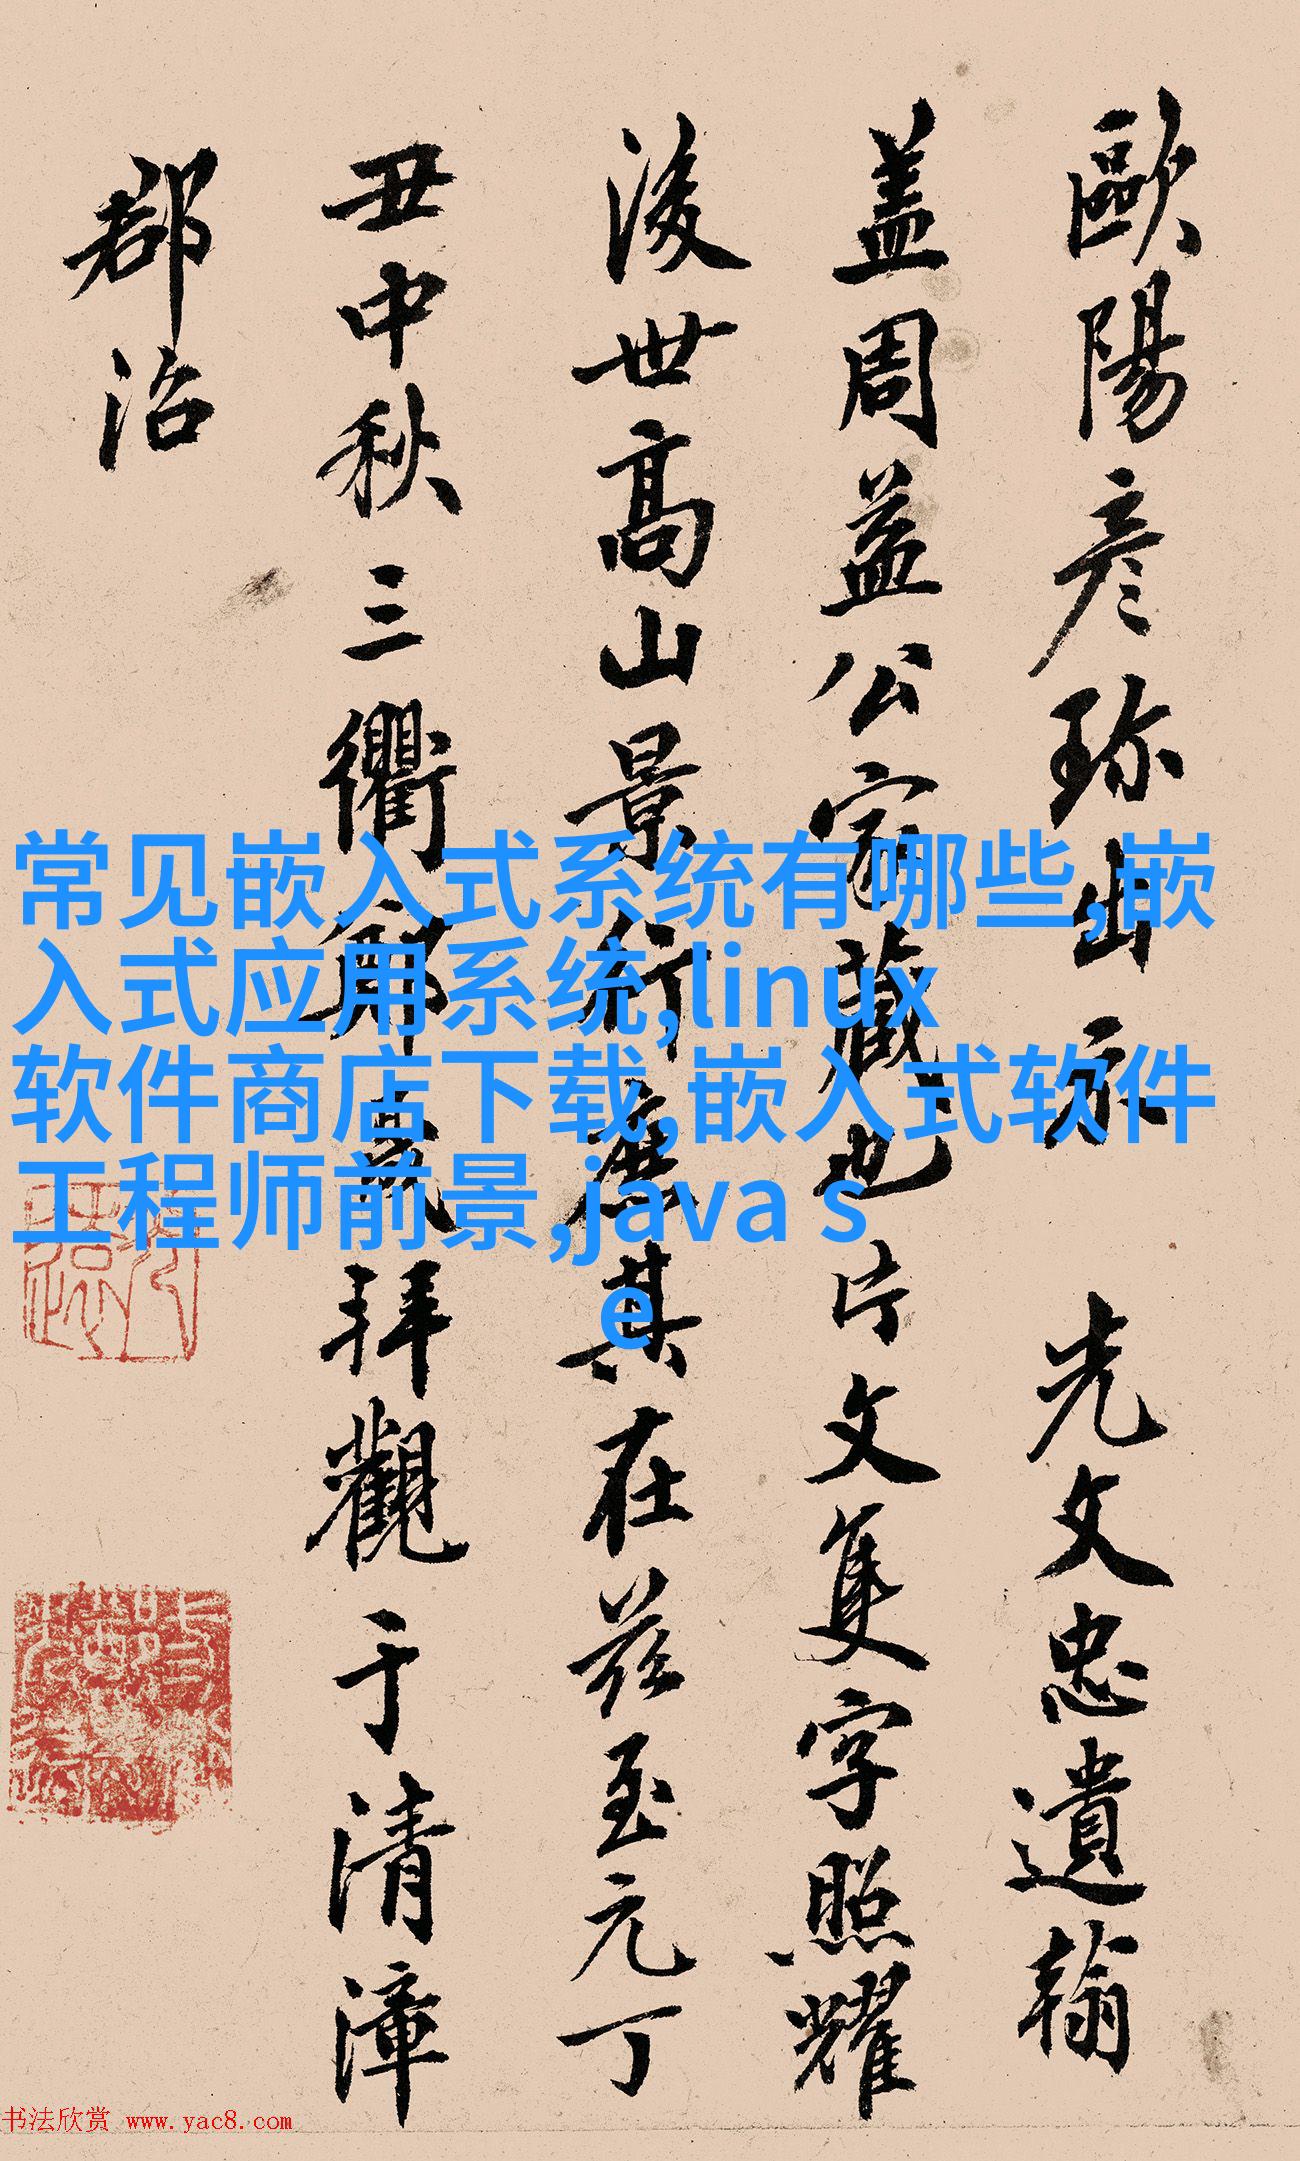 歐陽彦珎出示 先文忠遺翰
盖周益公家藏也片文隻字照耀
後世高山景行庶其在兹至元丁
丑中秋三衢 拜觀于清漳
郡治
常见嵌入式系统有哪些,嵌
入式应用系统,linux
软件商店下载,嵌入式软件
工程师前景,java s
e
书法欣赏 www.yac8.com